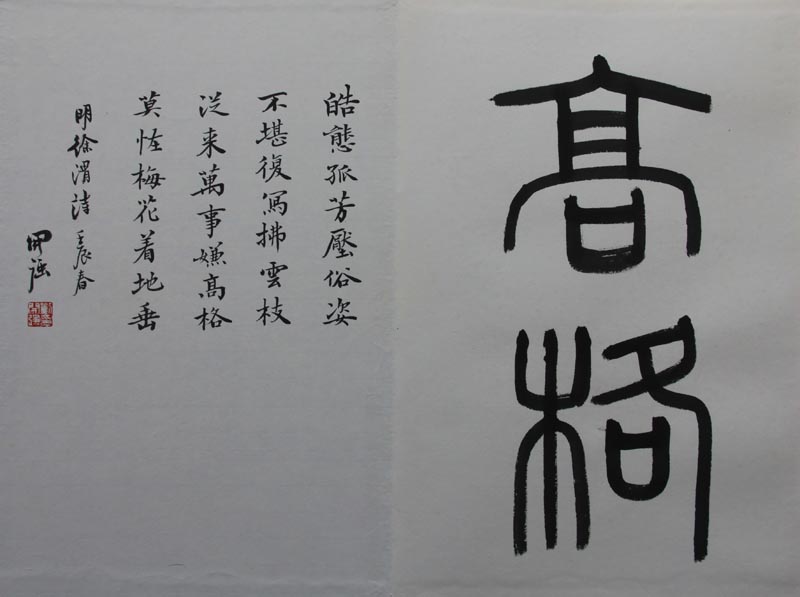 高格
皓態孤芳壓俗姿
不堪復寫拂雲枝
従来萬事嫌髙格
莫怪梅花着地垂
明徐渭詩 壬辰春
開強